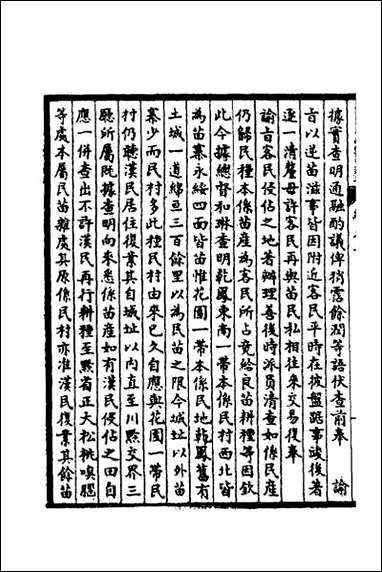 據實查明通融酌議俾猾露餘潤等語伏查前奉　諭
旨以逆苗滋事皆因附近客民平時在彼盤踞事竣後著
逐一清釐毋許客民再與苗民私相往來交易復奉
諭旨客民侵佔之地著辦理善後時派員清查如係民產
仍歸民種本係苗產為客民所占竟給良苗耕種等因欽
此今據總督和琳查明乾鳳東南一帶本係民村西北皆
為苗寨永綏四面皆苗惟花園一帶本係民地乾鳳舊有
土城一道綿亘三百餘里以為民苗之限今城址以外苗
寨少而民村多此種民村由來已久自應與花園一帶民
村仍聽漢民居住復業其自城址以內直至川黔交界三
廳所屬既據查明向來悉係苗產如有漢民侵佔之田自
應一併查出不許漢民再行耕種至黔省正大松桃嗅腦
等處本屬民苗雜處其原係民村亦准漢民復業其餘苗